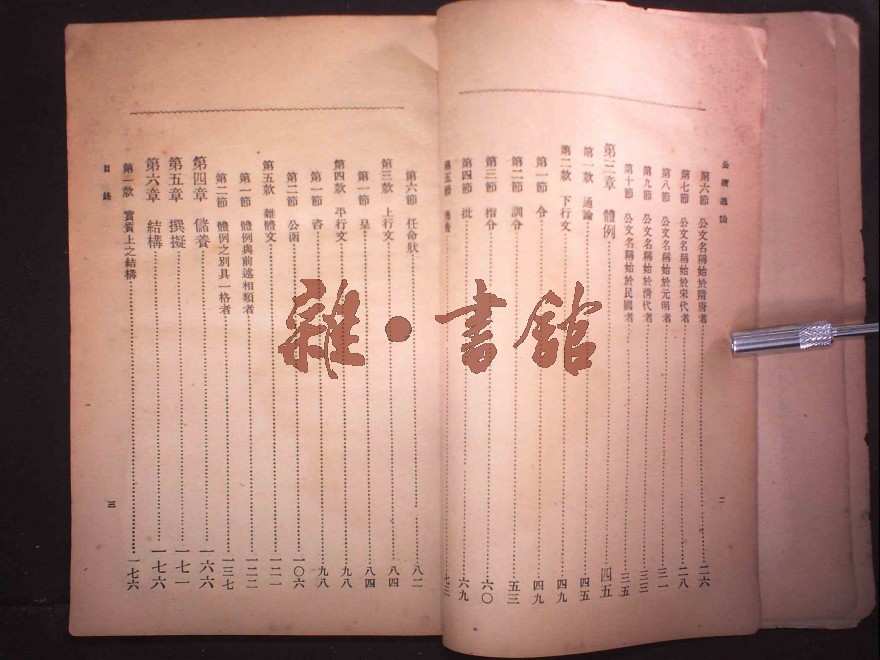 公牘通論
第六節 公文名稱始於隋唐者 二六
第七節 公文名稱始於宋代者 二八
第八節 公文名稱始於元明者 三一
第九節 公文名稱始於清代者 三三
第十節 公文名稱始於民國者 三五
第三章 體例 四五
第一款 通論 四五
第二款 下行文 四九
第一節 令 四九
第二節 訓令 五三
第三節 指令 六〇
第四節 批 六九
第五節 七三
二
第六節 任命狀 八二
第三款 上行文 八四
第一節 呈 八四
第四款 平行文 九八
第一節 咨 九八
第二節 公函 一〇六
第五款 雜體文 一二一
第一節 體例與前述相類者 一二二
第二節 體例之別具一格者 一三七
第四章 儲養 一六六
第五章 撰擬 一七一
第六章 結構 一七六
第一款 實質上之結構 一七六
目錄
三
雜·書館